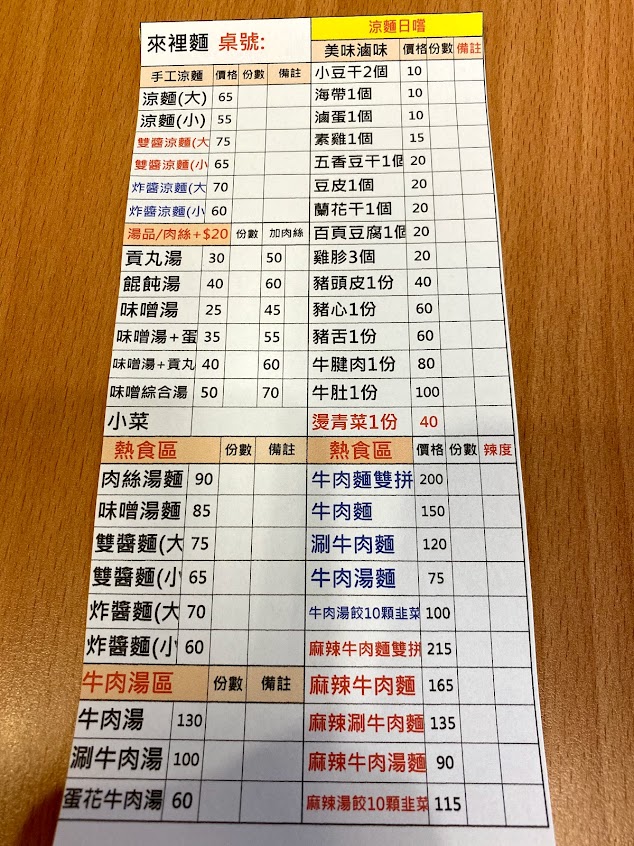 來裡麵 桌號:
手工涼麵 價格 份數 備註
涼麵(大) 65
涼麵(小) 55
雙醬涼麵(大 75
雙醬涼麵(小 65
炸醬涼麵(大 70
炸醬涼麵(小 60
湯品/肉絲+$20 份數 加肉絲
貢丸湯 30 50
餛飩湯 40 60
味噌湯 25 45
味噌湯+蛋 35 55
味噌湯+貢丸 40 60
味噌綜合湯 50 70
小菜
熱食區 份數 備註
肉絲湯麵 90
味噌湯麵 85
雙醬麵(大 75
雙醬麵(小 65
炸醬麵(大 70
炸醬麵(小 60
牛肉湯區 份數 備註
牛肉湯 130
涮牛肉湯 100
蛋花牛肉湯 60
涼麵日嚐
美味滷味 價格 份數 備註
小豆干2個 10
海帶1個 10
滷蛋1個 10
素雞1個 15
五香豆干1個 20
豆皮1個 20
蘭花干1個 20
百頁豆腐1個 20
雞胗3個 20
豬頭皮1份 40
豬心1份 60
豬舌1份 60
牛腱肉1份 80
牛肚1份 100
燙青菜1份 40
熱食區 價格 份數 辣度
牛肉麵雙拼 200
牛肉麵 150
涮牛肉麵 120
牛肉湯麵 75
牛肉湯餃10顆韭菜 100
麻辣牛肉麵雙拼 215
麻辣牛肉麵 165
麻辣涮牛肉麵 135
麻辣牛肉湯麵 90
麻辣湯餃10顆韭菜 115